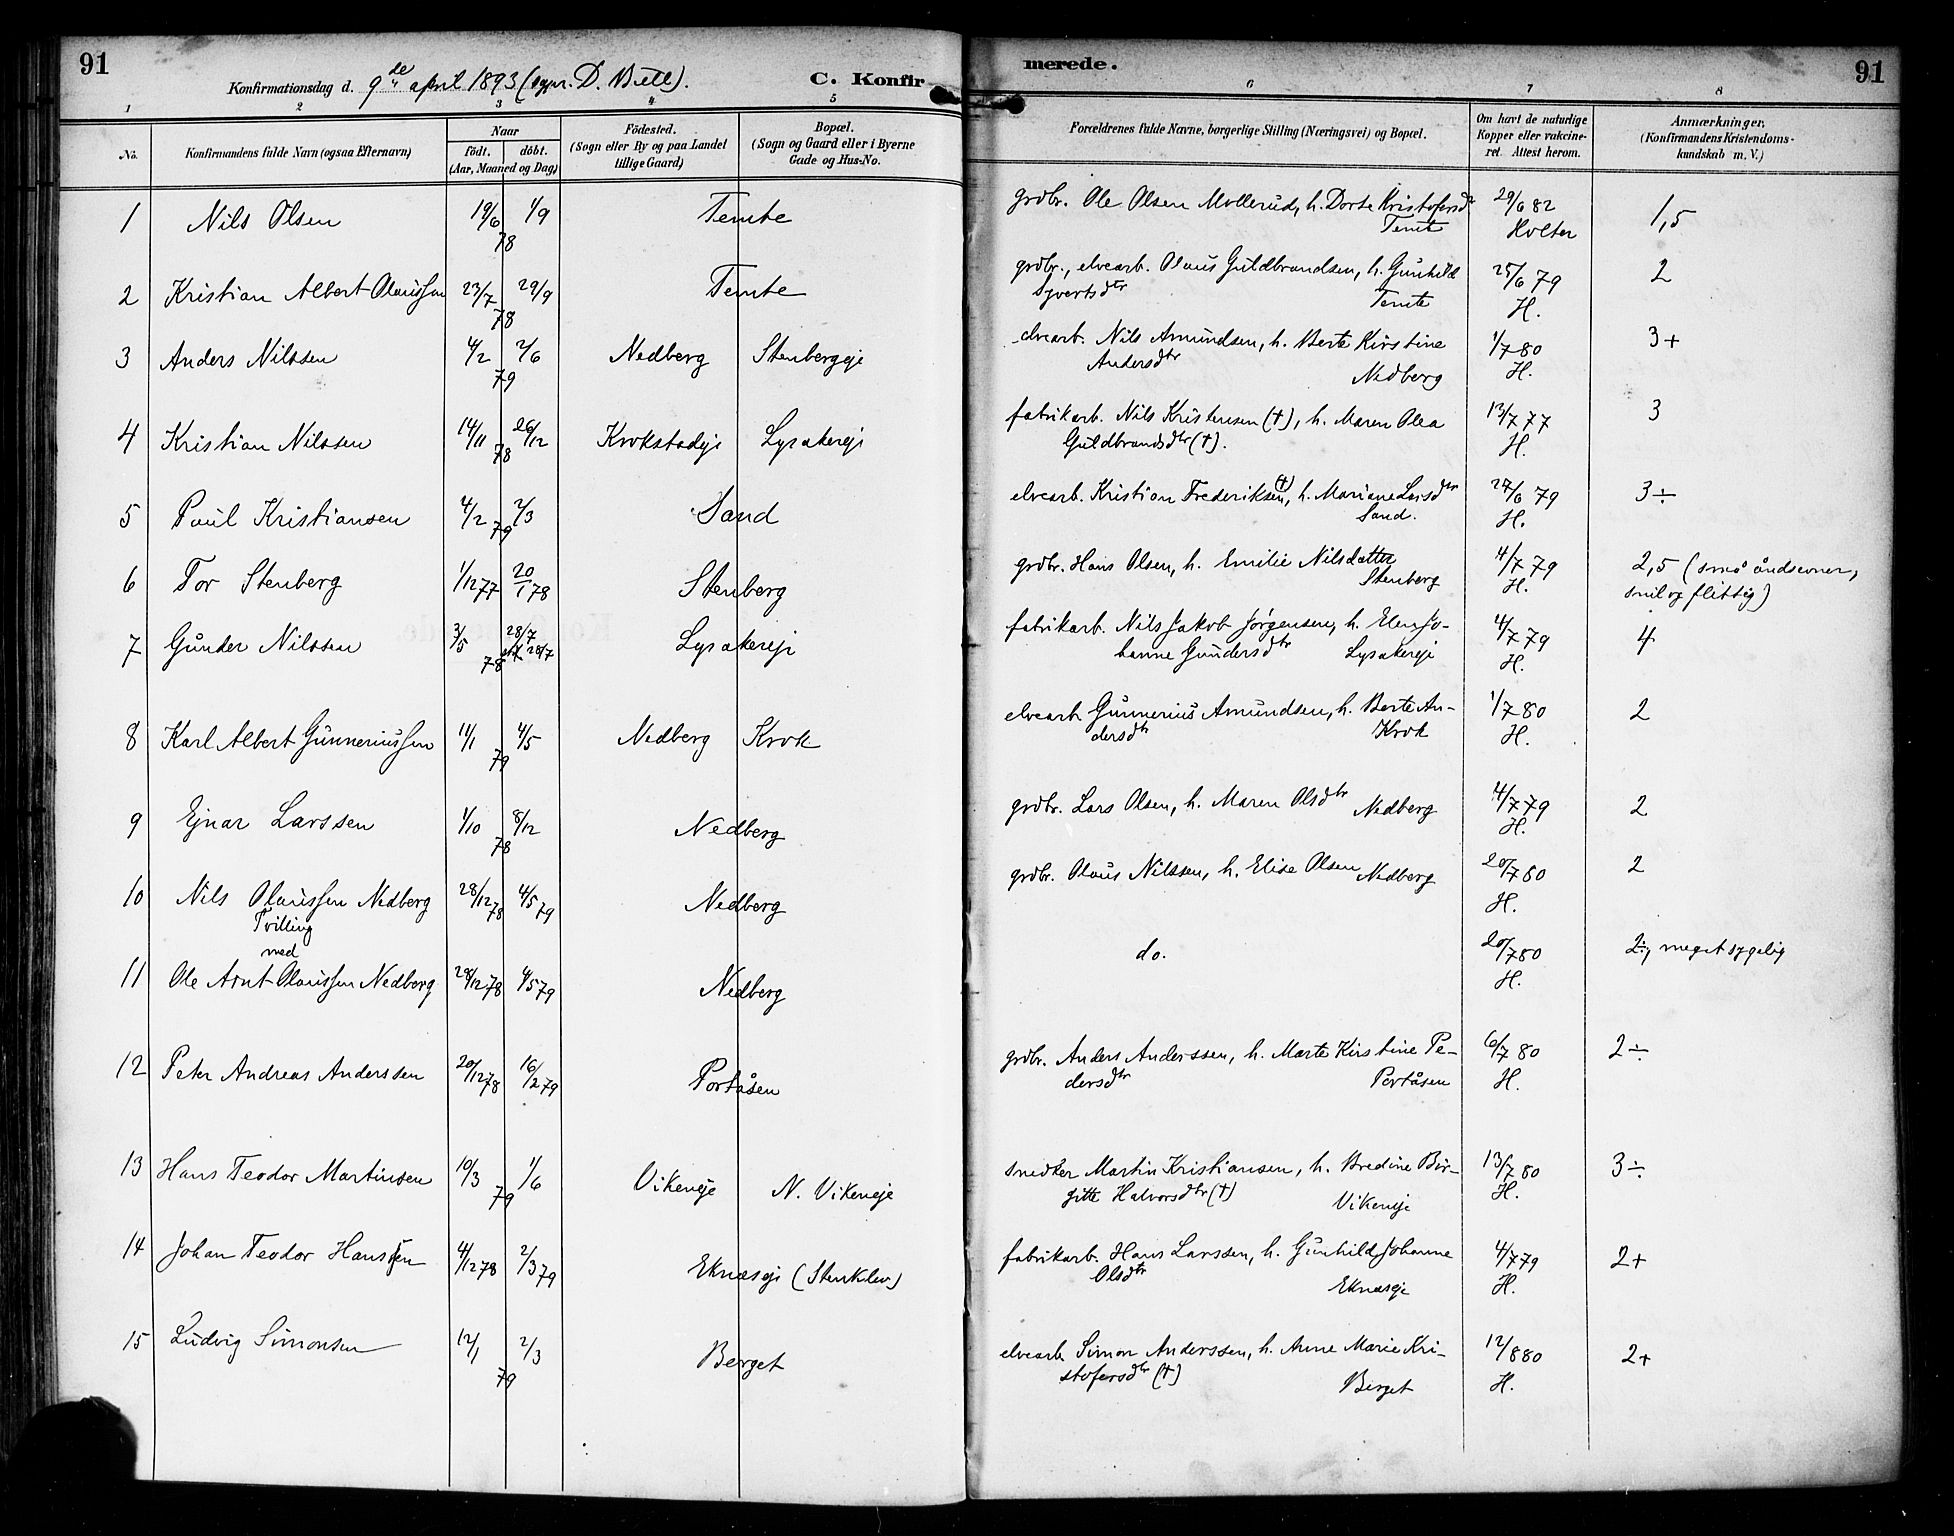 91
Konfirmationsdag d. 9de april 1893 (sgpr. D. Bull).
C. Konfir
merede.
91
1 2 3 4 5 6 7 8
No.
Konfirmandens fulde Navn (ogsaa Efternavn)
Naar
födt. döbt.
(Aar, Maaned og Dag)
Födested.
(Sogn eller By og paa Landet
tillige Gaard)
Bopæl.
(Sogn og Gaard eller i Byerne
Gade og Hus-No.
Forældrenes fulde Navne, borgerlige Stilling (Næringsvei) og Bopæl.
Om havt de naturlige
Kopper eller vakcine-
ret. Attest herom.
Anmærkninger,
(Konfirmandens Kristendoms-
kundskab m. V.)
1 Nils Olsen 19/6 1/9 Temte grdbr. Ole Olsen Mollerud, h. Dorte Kristofersdtr 29/6 82 1,5
78 Temte Holter
2 Kristian Albert Olaussen 23/7 29/9 Temte grdbr., elvearb. Olaus Guldbrandsen, h. Gunhild 25/6 79 2
78 Syvertsdtr Temte H.
3 Anders Nilssen 4/2 2/6 Nedberg Stenbergeje elvearb. Nils Amundsen, h. Berte Kirstine 1/7 80 3+
79 Andersdtr Nedberg H.
4 Kristian Nilssen 14/11 26/12 Krokstadeje Lysakereje fabrikarb. Nils Kristensen (†), h. Maren Olea 13/7 77 3
78 Guldbrandsdtr (†). H.
5 Paul Kristiansen 4/2 2/3 Sand elvearb. Kristian Frederiksen (†), h. Mariane Larsdtr 27/6 79 3÷
79 Sand. H.
6 Tor Stenberg 1/12 77 20/1 78 Stenberg grdbr. Hans Olsen, h. Emilie Nilsdatter 4/7 79 2,5 (små åndsevner,
Stenberg H. snil og flittig)
7 Gunder Nilssen 3/5 28/7 Lysakereje fabrikarb. Nils Jakob Jørgensen, h. Elen Jo- 4/7 79 4
78 28/7 hanne Gundersdtr Lysakereje H.
8 Karl Albert Gunneriussen 11/1 4/5 Nedberg Krok elvearb Gunnerius Amundsen, h. Berte An- 1/7 80 2
79 dersdtr Krok H.
9 Ejnar Larssen 1/10 8/12 Nedberg grdbr. Lars Olsen, h. Maren Olsdtr Nedberg 4/7 79 2
78 H.
10 Nils Olaussen Nedberg 28/12 78 4/5 79 Nedberg grdbr. Olaus Nilssen, h. Elise Olsen Nedberg 20/7 80 2
Tvilling H.
med
11 Ole Arnt Olaussen Nedberg 28/12 78 4/5 79 Nedberg do. 20/7 80 2÷, meget sygelig
H.
12 Peter Andreas Anderssen 20/12 78 16/2 79 Portåsen grdbr. Anders Anderssen, h. Marte Kirstine Pe- 6/7 80 2÷
dersdtr Portåsen H.
13 Hans Teodor Martinsen 10/3 1/6 Vikeneje N. Vikeneje snedker Martin Kristiansen, h. Bredine Bir- 13/7 80 3÷
79 gitte Halvorsdtr (†) Vikeneje H.
14 Johan Teodor Hanssen 4/12 78 2/3 79 Eknæseje (Stenklev) fabrikarb. Hans Larssen, h. Gunhild Johanne 4/7 79 2+
Olsdtr Eknæseje H.
15 Ludvig Simonsen 12/1 2/3 Berget elvearb Simon Anderssen, h. Anne Marie Kri- 12/8 80 2+
79 stofersdtr (†) Berget H.